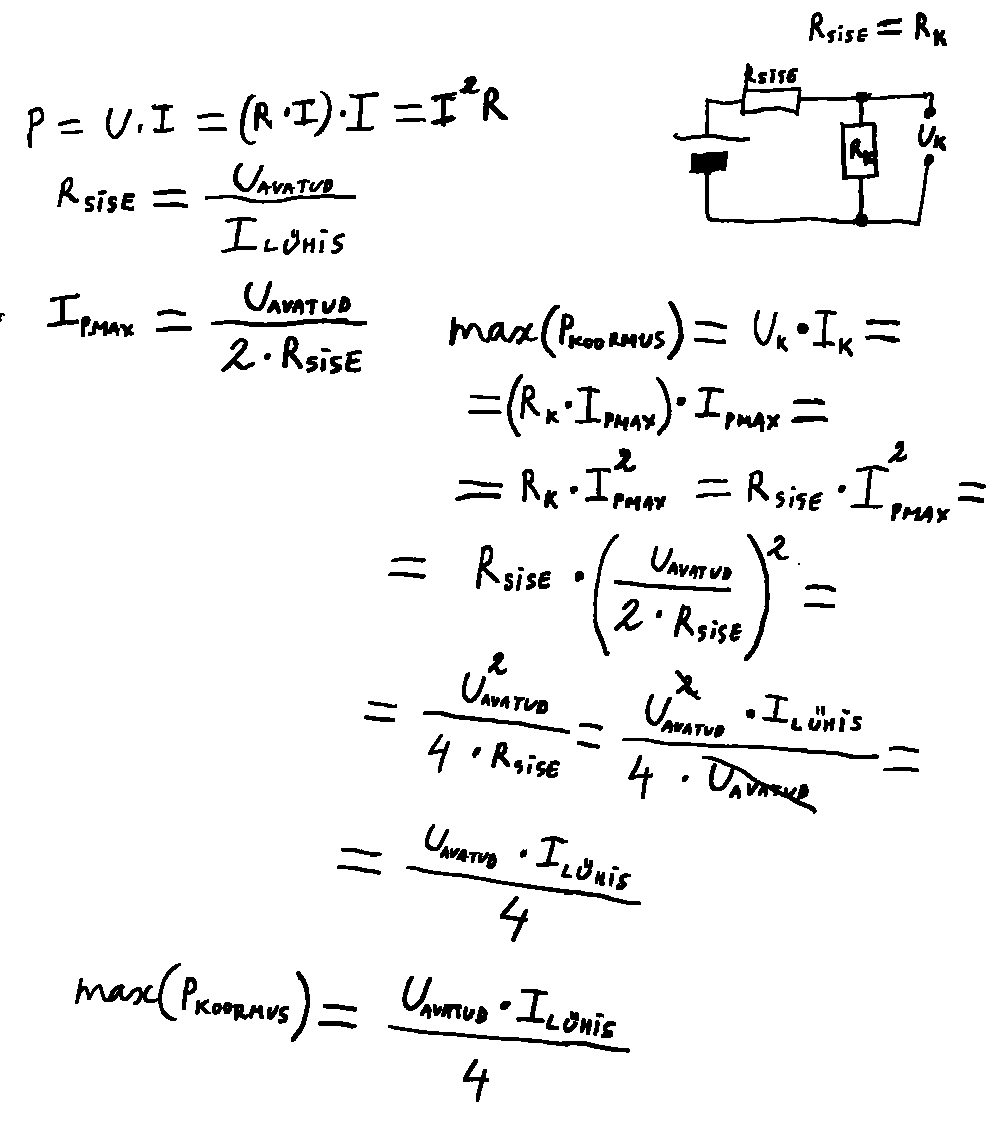 R_SISE = R_K
R_SISE
R_K
U_K
P = U · I = (R · I) · I = I² R
R_SISE = U_AVATUD / I_LÜHIS
I_PMAX = U_AVATUD / 2 · R_SISE
max(P_KOORMUS) = U_K · I_K =
= (R_K · I_PMAX) · I_PMAX =
= R_K · I²_PMAX = R_SISE · I²_PMAX =
= R_SISE · (U_AVATUD / 2 · R_SISE)² =
= U²_AVATUD / 4 · R_SISE = U²_AVATUD · I_LÜHIS / 4 · U_AVATUD =
= U_AVATUD · I_LÜHIS / 4
max(P_KOORMUS) = U_AVATUD · I_LÜHIS / 4